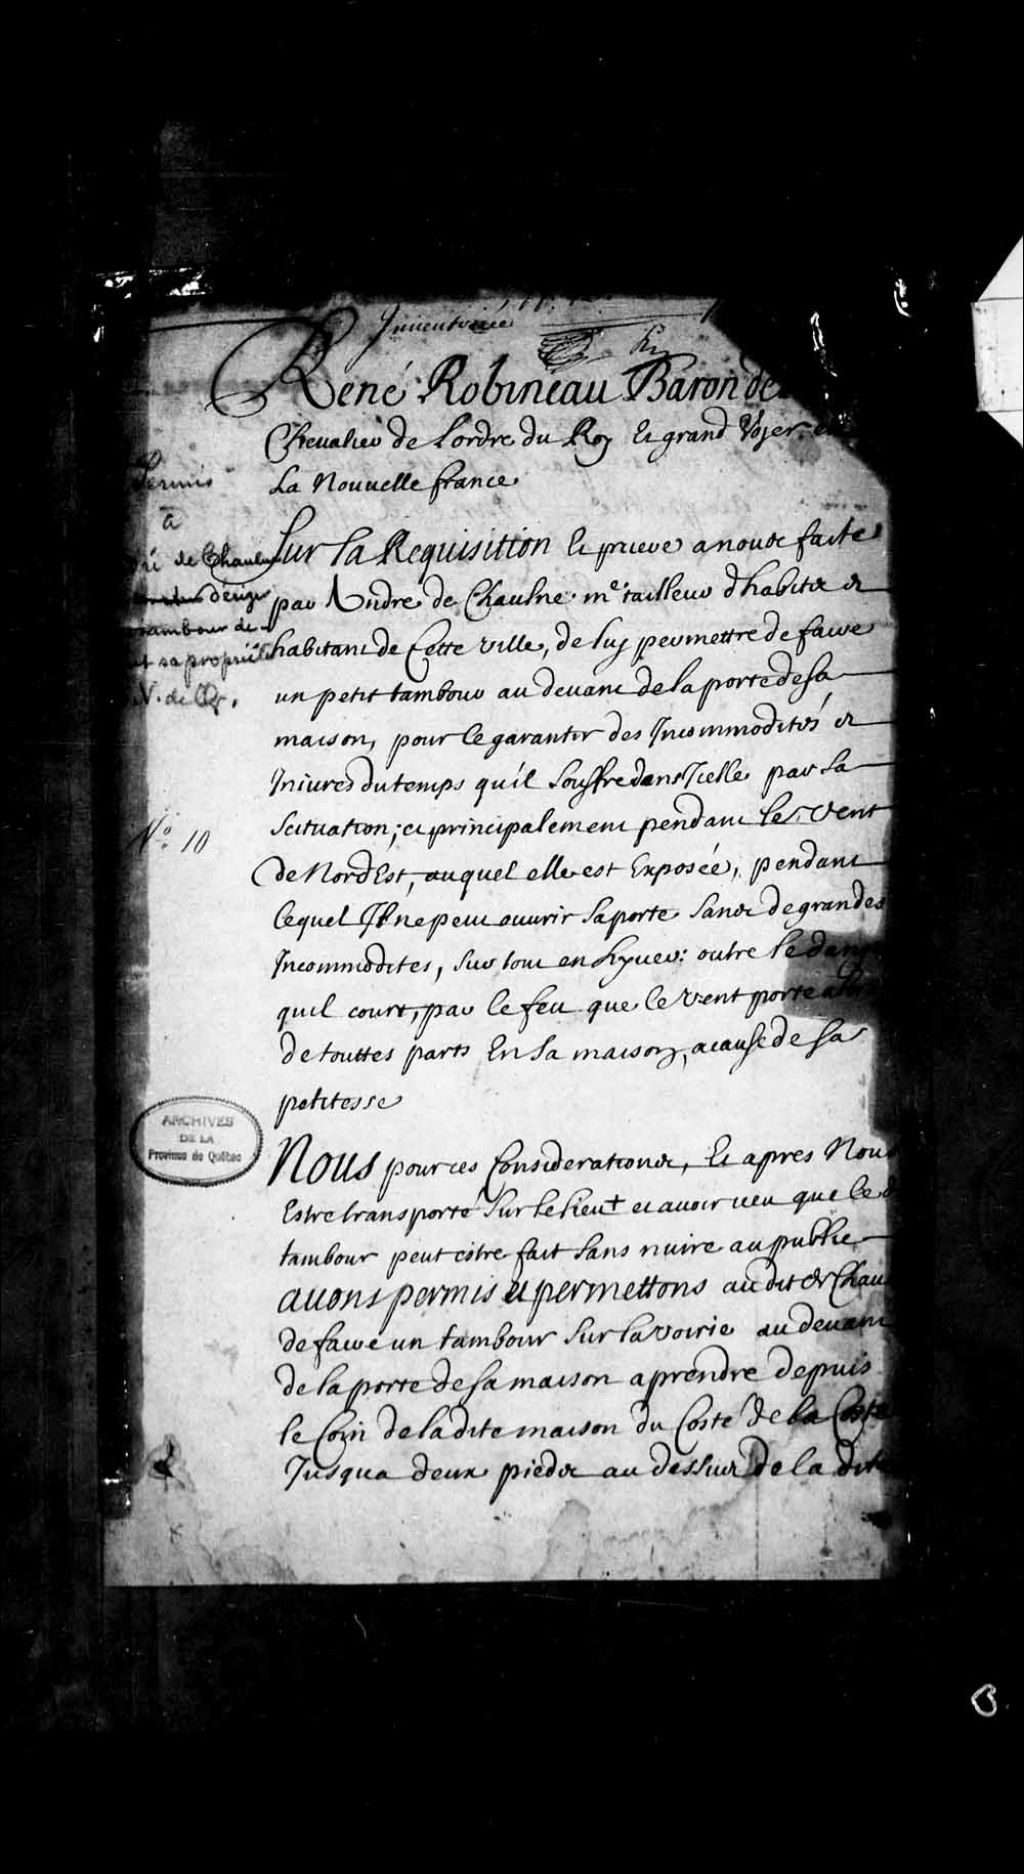 Inuentoriée
René Robineau Baron de
Cheualier de Lordre du Roy Et grand Voyer en
La Nouuelle france
Permis
a
de Chaulne
d'eriger
tambour de
sa propriété
V. de Q.
Sur la Requisition Et priere a nous faite
par Andre de Chaulne me tailleur dhabits et
habitant de Cette ville, de luy permettre de faire
un petit tambour au deuant de la porte de sa
maison, pour le garantir des Incommodités et
Iniures du temps qu'il souffre dans Icelle par sa
Scituation; et principalement pendant les vent
de Nord Est, auquel elle est Exposée, pendant
lequel Il ne peut ouurir sa porte sans de grandes
Incommodites, sur tout en hyuer: outre le dang
quil court, par le feu que le vent porte
de touttes parts En sa maison, a cause de sa
petitesse
No 10
ARCHIVES
DE LA
Province de Québec
Nous pour ces Considerations, Et apres Nous
Estre transporté sur le lieu + et auoir ueu que le d
tambour peut estre fait sans nuire au public
auons permis et permettons au dit de Chau
de faire un tambour sur la voirie au deuant
de la porte de sa maison a prendre depuis
le Coin de la dite maison du Costé de la Coste
Jusqua deux pieds au dessus de la dite
B